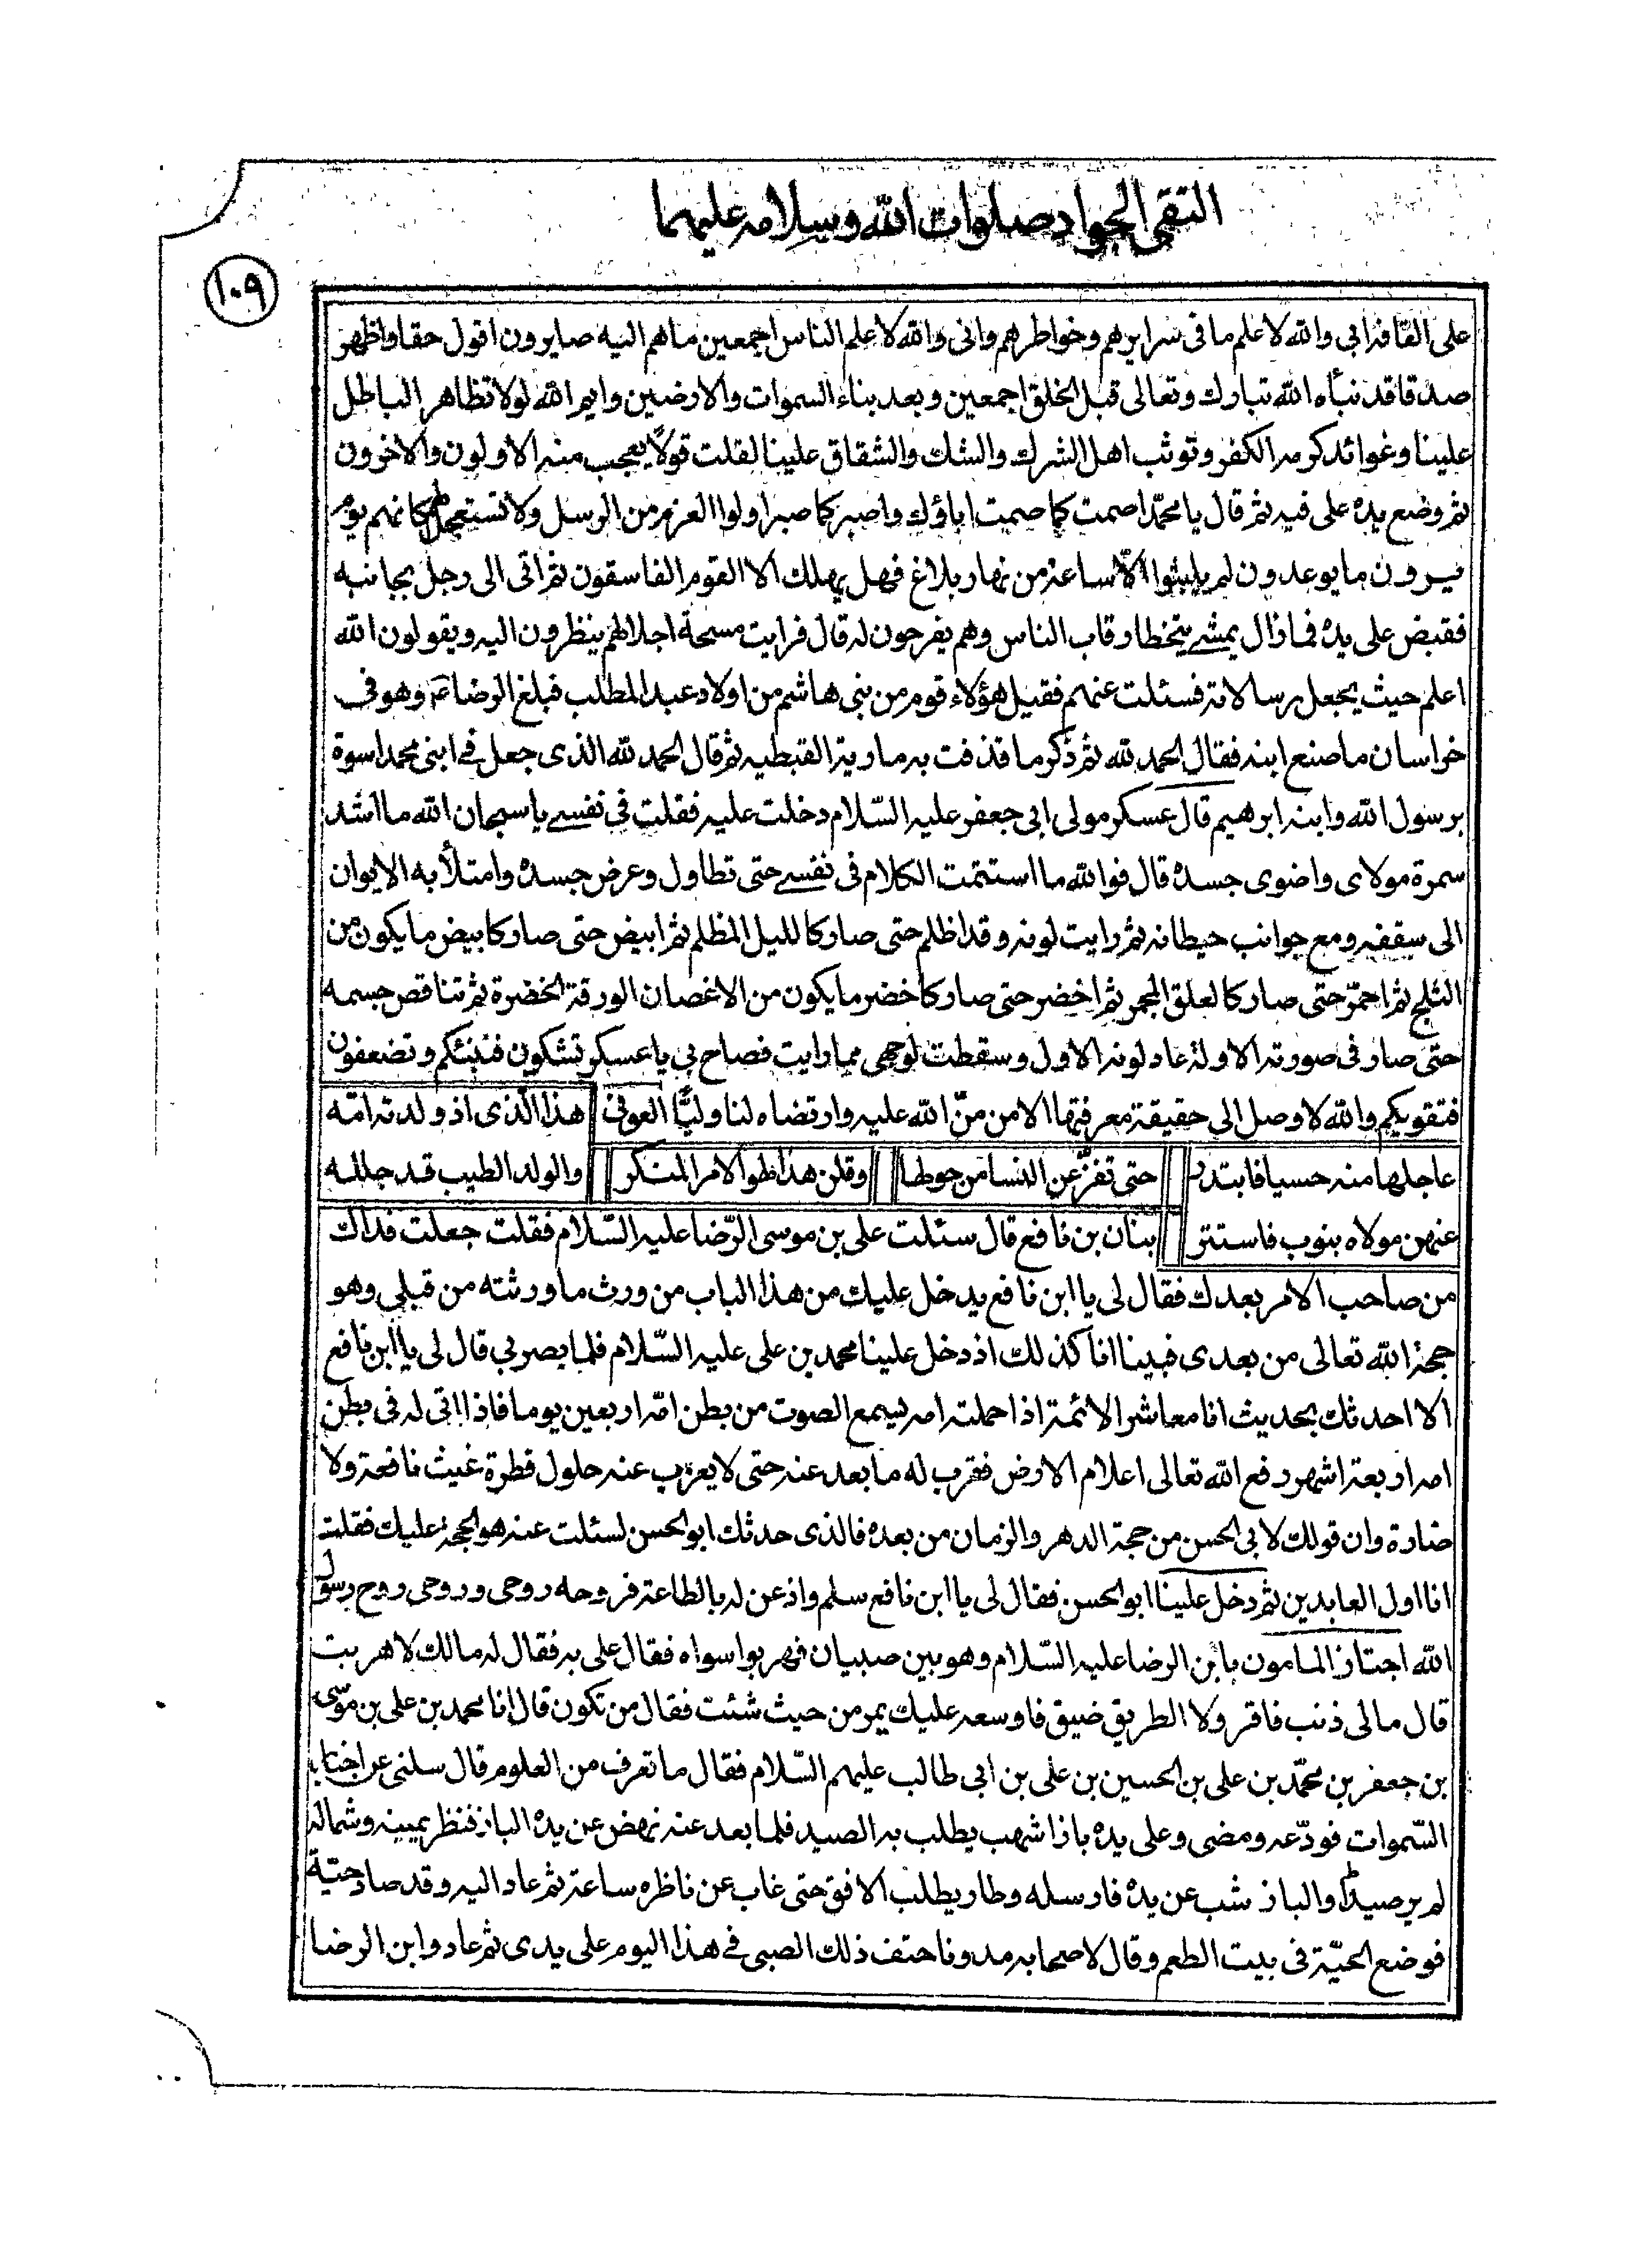 التقى الجواد صلوات الله وسلامه عليهما
١٠٩
على القافة انى والله لاعلم ما فى سرايرهم وخواطرهم وانى والله لاعلم الناس اجمعين ما هم اليه صايرون اقول حقا واظهر
صدقا قد نبأه الله تبارك وتعالى قبل الخلق اجمعين وبعد بناء السموات والارضين وايم الله لولا تظاهر الباطل
علينا وغوائد كرمه الكفر وتوثب اهل الشرك والشك والشقاق علينا لقلت قولا يعجب منه الاولون والاخرون
ثم وضع يده على فيه ثم قال يا محمد اصمت كما صمت اباؤك واصبر كما صبر اولوا العزم من الرسل ولا تستعجل لهم كانهم يوم
يرون ما يوعدون لم يلبثوا الا ساعة من نهار بلاغ فهل يهلك الا القوم الفاسقون ثم اتى الى رجل بجانبه
فقبض على يده فما زال يمشى يتخطا رقاب الناس وهم يفرجون له قال فرايت مسحة اجلالهم ينظرون اليه ويقولون الله
اعلم حيث يجعل رسالاته فسئلت عنهم فقيل هؤلاء قوم من بنى هاشم من اولاد عبد المطلب فبلغ الرضا عم وهو فى
خراسان ما صنع ابنه فقال الحمد لله ثم ذكر ما قذفت به مارية القبطيه ثم قال الحمد لله الذى جعل فى ابنى محمد اسوة
برسول الله وابنه ابرهيم قال عسكر مولى ابى جعفر عليه السّلام دخلت عليه فقلت فى نفسى يا سبحان الله ما اشد
سمرة مولاى واضوى جسده قال فوالله ما استتمت الكلام فى نفسى حتى تطاول وعرض جسده وامتلأ به الايوان
الى سقفه ومع جوانب حيطانه ثم رايت لونه وقد اظلم حتى صار كالليل المظلم ثم ابيض حتى صار كابيض ما يكون من
الثلج ثم احمرّ حتى صار كالعلق المحمر ثم اخضر حتى صار كاخضر ما يكون من الاغصان الورقة الخضرة ثم تناقص جسمه
حتى صار فى صورته الاولة وعاد لونه الاول وسقطت لوجهى مما رايت فصاح بى يا عسكر تشكون فننبئكم وتضعفون
فنقويكم والله لا وصل الى حقيقة معرفتها الا من منّ الله عليه وارتضاه لنا وليًّا العوفى هذا الذى اذ ولدته امّه
عاجلها منه حسيا فابتدر حتى تفزّ عن النسا من حوطا وقلن هذا طوا الامر المنكر والولد الطيب قد جلله
عنهن مولاه بثوب فاستتر بنان بن نافع قال سئلت على بن موسى الرّضا عليه السّلام فقلت جعلت فداك
من صاحب الامر بعدك فقال لى يا ابن نافع يدخل عليك من هذا الباب من ورث ما ورثته من قبلى وهو
حجة الله تعالى من بعدى فبينا انا كذلك اذ دخل علينا محمد بن على عليه السّلام فلما بصر بى قال لى يا ابن نافع
الا احدثك بحديث انا معاشر الائمة اذا حملته امه يسمع الصوت من بطن امّه اربعين يوما فاذا اتى له فى بطن
امه اربعة اشهر رفع الله تعالى اعلام الارض فقرب له ما بعد عنه حتى لا يعزب عنه حلول قطرة غيث نافعة ولا
ضارة وان قولك لابى الحسن من حجة الدهر والزمان من بعده فالذى حدثك ابو الحسن لسئلت عنه هو الحجة عليك فقلت
انا اول العابدين ثم دخل علينا ابو الحسن فقال لى يا ابن نافع سلم واذعن له بالطاعة فروحه روحى وروحى روح رسول
الله اجتاز المامون بابن الرضا عليه السّلام وهو بين صبيان فهربوا سواه فقال على به فقال له مالك لا هربت
قال مالى ذنب فافر ولا الطريق ضيق فاوسعه عليك يمر من حيث شئت فقال من تكون قال انا محمد بن على بن موسى
بن جعفر بن محمّد بن على بن الحسين بن على بن ابى طالب عليهم السّلام فقال ما تعرف من العلوم قال سلنى عن اخبار
السّموات فودّعه ومضى وعلى يده باز اشهب يطلب به الصيد فلما بعد عنه نهض عن يده الباز فنظر يمينه وشماله
لم ير صيدًا والباز شب عن يده فارسله وطار يطلب الافق حتى غاب عن ناظره ساعة ثم عاد اليه وقد صاد حيّة
فوضع الحيّة فى بيت الطعم وقال لاصحابه مدونا حتف ذلك الصبى فى هذا اليوم على يدى ثم عاد وابن الرضا